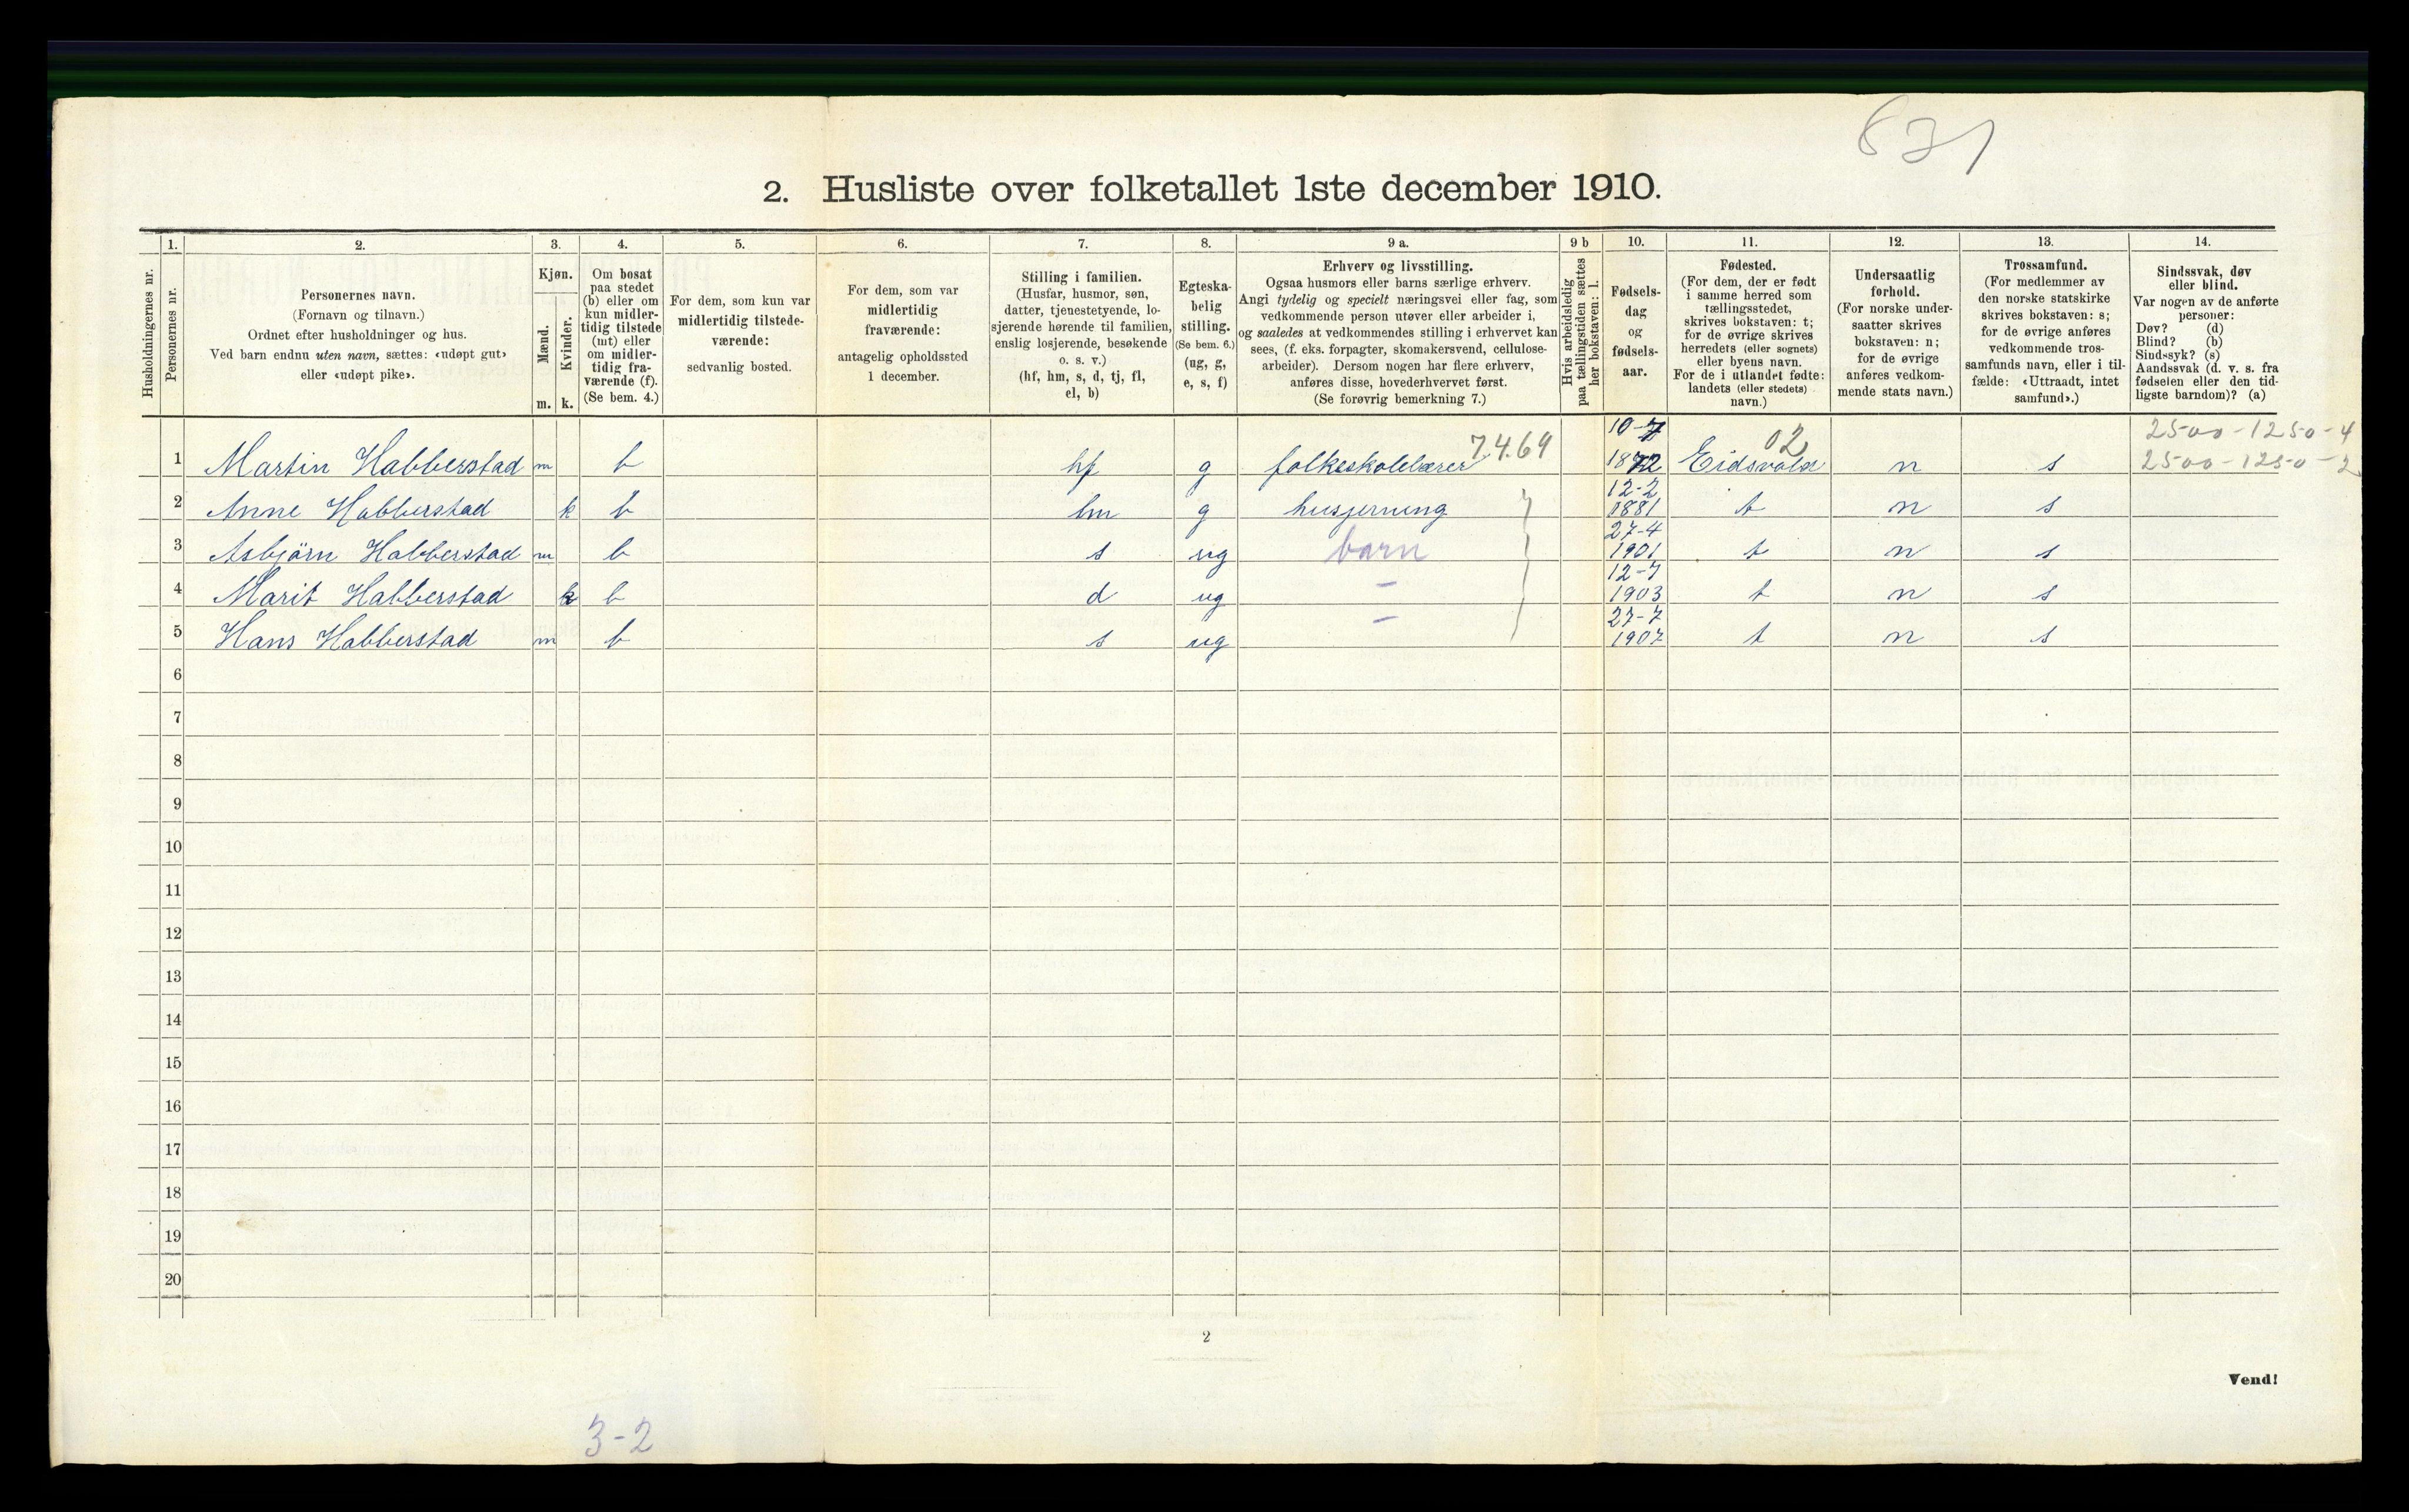 831
2. Husliste over folketallet 1ste december 1910.
Husholdningernes nr.
1.
Personernes nr.
2.
Personernes navn.
(Fornavn og tilnavn.)
Ordnet efter husholdninger og hus.
Ved barn endnu uten navn, sættes: «udøpt gut»
eller «udøpt pike».
3.
Kjøn.
Mænd.
Kvinder.
m. k.
4.
Om bosat
paa stedet
(b) eller om
kun midler-
tidig tilstede
(mt) eller
om midler-
tidig fra-
værende (f).
(Se bem. 4.)
5.
For dem, som kun var
midlertidig tilstede-
værende:
sedvanlig bosted.
6.
For dem, som var
midlertidig
fraværende:
antagelig opholdssted
1 december.
7.
Stilling i familien.
(Husfar, husmor, søn,
datter, tjenestetyende, lo-
sjerende hørende til familien,
enslig losjerende, besøkende
o. s. v.)
(hf, hm, s, d, tj, fl,
el, b)
8.
Egteska-
belig
stilling.
(Se bem. 6.)
(ug, g,
e, s, f)
9 a.
Erhverv og livsstilling.
Ogsaa husmors eller barns særlige erhverv.
Angi tydelig og specielt næringsvei eller fag, som
vedkommende person utøver eller arbeider i,
og saaledes at vedkommendes stilling i erhvervet kan
sees, (f. eks. forpagter, skomakersvend, cellulose-
arbeider). Dersom nogen har flere erhverv,
anføres disse, hovederhvervet først.
(Se forøvrig bemerkning 7.)
9 b
Hvis arbeidsledig
paa tællingstiden sættes
her bokstaven: l.
10.
Fødsels-
dag
og
fødsels-
aar.
11.
Fødested.
(For dem, der er født
i samme herred som
tællingsstedet,
skrives bokstaven: t;
for de øvrige skrives
herredets (eller sognets)
eller byens navn.
For de i utlandet fødte:
landets (eller stedets)
navn.)
12.
Undersaatlig
forhold.
(For norske under-
saatter skrives
bokstaven: n;
for de øvrige
anføres vedkom-
mende stats navn.)
13.
Trossamfund.
(For medlemmer av
den norske statskirke
skrives bokstaven: s;
for de øvrige anføres
vedkommende tros-
samfunds navn, eller i til-
fælde: «Uttraadt, intet
samfund».)
14.
Sindssvak, døv
eller blind.
Var nogen av de anførte
personer:
Døv? (d)
Blind? (b)
Sindssyk? (s)
Aandssvak (d. v. s. fra
fødselen eller den tid-
ligste barndom)? (a)
10-7 02 2500-1250-4
1 Martin Habberstad m b hf g folkeskolelærer 7.4.69 1872 Eidsvold n s 2500-1250-2
12-2
2 Anne Habberstad k b hm g husgjerning 1881 t n s
27-4
3 Asbjörn Habberstad m b s ug barn 1901 t n s
12-7
4 Marit Habberstad k b d ug - 1903 t n s
27-7
5 Hans Habberstad m b s ug - 1907 t n s
6
7
8
9
10
11
12
13
14
15
16
17
18
19
20
2
Vend!
3-2